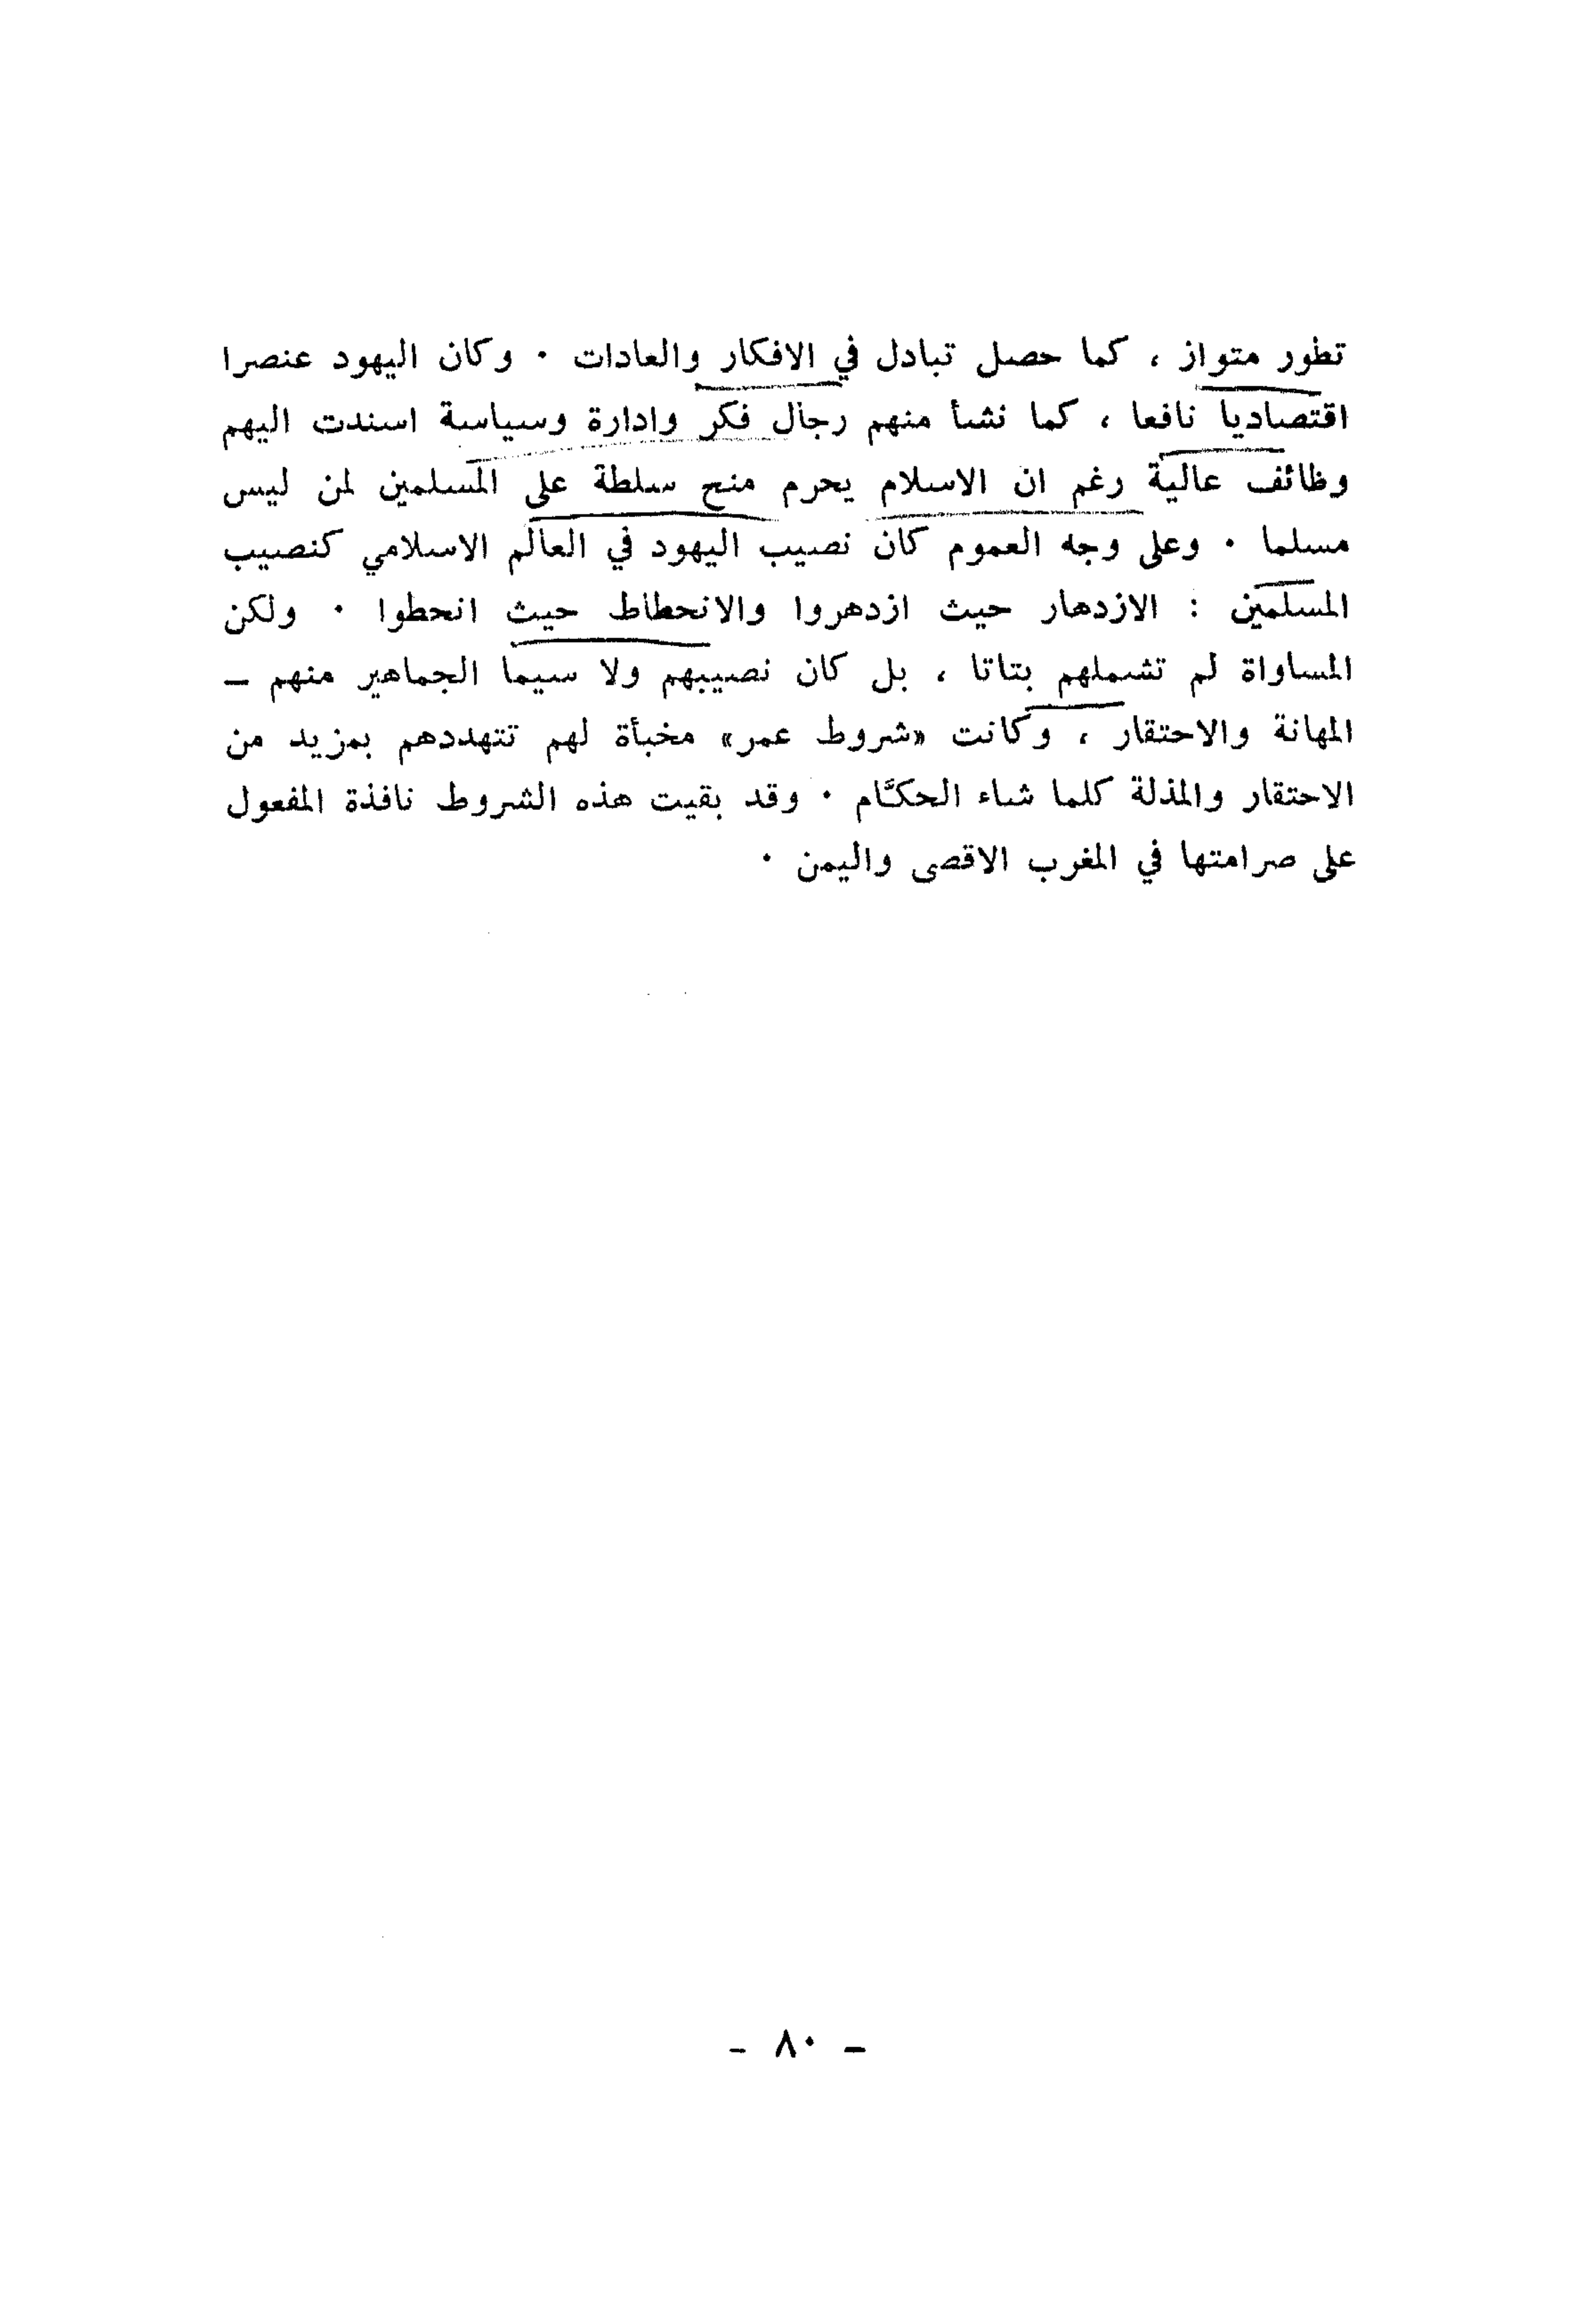 تطور متواز ، كما حصل تبادل في الافكار والعادات · وكان اليهود عنصرا
اقتصاديا نافعا ، كما نشأ منهم رجال فكر وادارة وسياسة اسندت اليهم
وظائف عالية رغم ان الاسلام يحرم منح سلطة على المسلمين لمن ليس
مسلما · وعلى وجه العموم كان نصيب اليهود في العالم الاسلامي كنصيب
المسلمين : الازدهار حيث ازدهروا والانحطاط حيث انحطوا · ولكن
المساواة لم تشملهم بتاتا ، بل كان نصيبهم ولا سيما الجماهير منهم –
المهانة والاحتقار ، وكانت «شروط عمر» مخبأة لهم تتهددهم بمزيد من
الاحتقار والمذلة كلما شاء الحكّام · وقد بقيت هذه الشروط نافذة المفعول
على صرامتها في المغرب الاقصى واليمن ·
- ٨٠ -